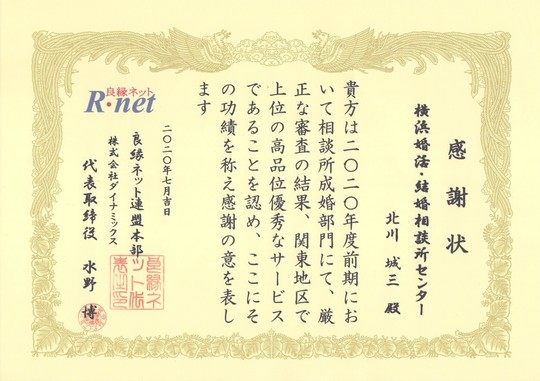 感謝状
横浜婚活・結婚相談所センター
北川 城三 殿
貴方は二〇二〇年度前期にお
いて相談所成婚部門にて、厳
正な審査の結果、関東地区で
上位の高品位優秀なサービス
であることを認め、ここにそ
の功績を称え感謝の意を表し
ます
二〇二〇年七月吉日
良縁ネット連盟本部
株式会社ダイナミックス
代表取締役 水野 博
良縁ネット
R・net